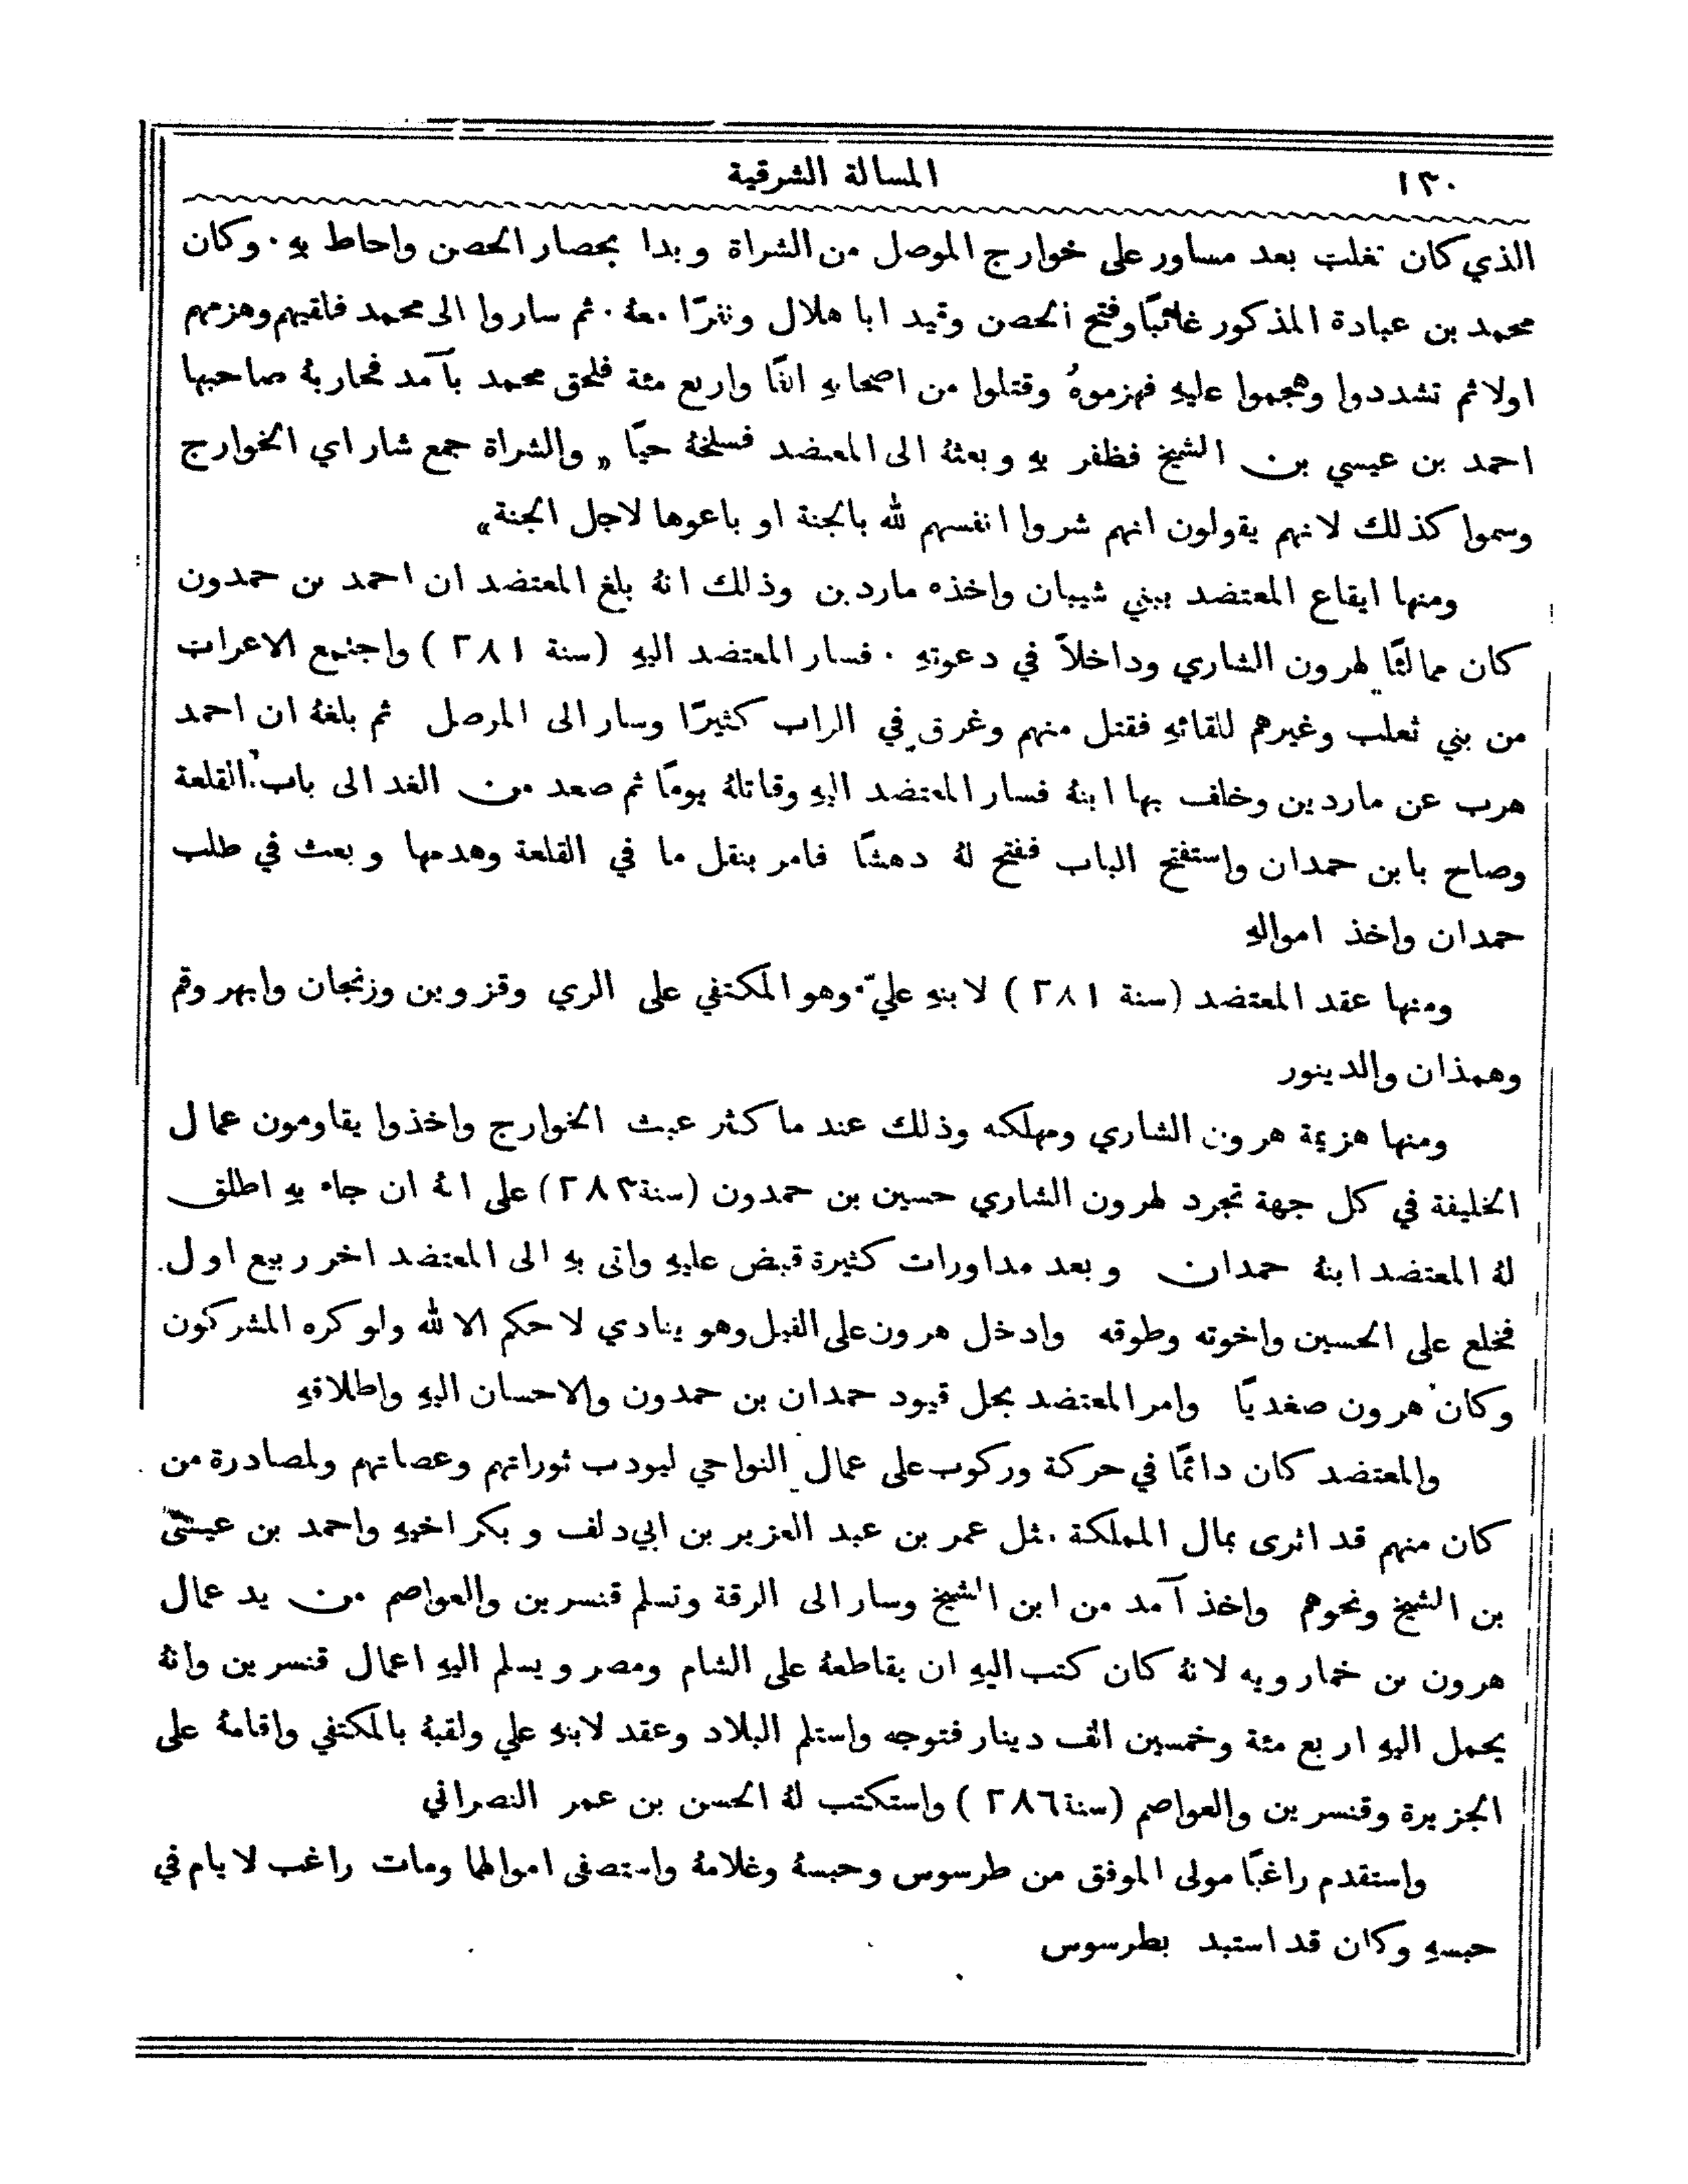 ١٣٠
المسالة الشرقية
الذي كان تغلب بعد مساور على خوارج الموصل من الشراة وبدا بحصار الحصن واحاط بهِ٠ وكان
محمد بن عبادة المذكور غائبًا وفتح الحصن وقيد ابا هلال ونفرًا معهُ ٠ ثم ساروا الى محمد فلقيهم وهزمهم
اولا ثم تشددوا وهجموا عليهِ فهزموهُ وقتلوا من اصحابهِ الفًا واربع مئة فلحق محمد بآمد فحاربهُ صاحبها
احمد بن عيسي بن الشيخ فظفر بهِ وبعثهُ الى المعتضد فسلخهُ حيًا „ والشراة جمع شار اي الخوارج
وسموا كذلك لانهم يقولون انهم شروا انفسهم لله بالجنة او باعوها لاجل الجنة“
ومنها ايقاع المعتضد ببني شيبان واخذه ماردين وذلك انهُ بلغ المعتضد ان احمد بن حمدون
كان ممالئًا لهرون الشاري وداخلاً في دعوتهِ ٠ فسار المعتضد اليهِ (سنة ٢٨١) واجتمع الاعراب
من بني ثعلب وغيرهم للقائهِ فقتل منهم وغرق في الزاب كثيرًا وسار الى الموصل ثم بلغهُ ان احمد
هرب عن ماردين وخلف بها ابنهُ فسار المعتضد اليهِ وقاتلهُ يومًا ثم صعد من الغد الى باب القلعة
وصاح بابن حمدان واستفتح الباب ففتح لهُ دهشًا فامر بنقل ما في القلعة وهدمها وبعث في طلب
حمدان واخذ اموالهِ
ومنها عقد المعتضد (سنة ٢٨١) لابنهِ عليّ وهو المكتفي على الري وقزوين وزنجان وابهر وقم
وهمذان والدينور
ومنها هزيمة هرون الشاري ومهلكه وذلك عند ما كثر عبث الخوارج واخذوا يقاومون عمال
الخليفة في كل جهة تجرد لهرون الشاري حسين بن حمدون (سنة ٢٨٣) على انهُ ان جاء بهِ اطلق
لهُ المعتضد ابنهُ حمدان وبعد مداورات كثيرة قبض عليهِ واتى بهِ الى المعتضد اخر ربيع اول
فخلع على الحسين واخوته وطوقه وادخل هرون على الفيل وهو ينادي لا حكم الا لله ولو كره المشركون
وكان هرون صغديًا وامر المعتضد بحل قيود حمدان بن حمدون والاحسان اليهِ واطلاقهِ
والمعتضد كان دائمًا في حركة وركوب على عمال النواحي ليودب ثوراتهم وعصاتهم ولمصادرة من
كان منهم قد اثرى بمال المملكة مثل عمر بن عبد العزيز بن ابي دلف وبكر اخيهِ واحمد بن عيسى
بن الشيخ ونحوهم واخذ آمد من ابن الشيخ وسار الى الرقة وتسلم قنسرين والعواصم من يد عمال
هرون بن خمارويه لانهُ كان كتب اليهِ ان يقاطعهُ على الشام ومصر ويسلم اليهِ اعمال قنسرين وانهُ
يحمل اليهِ اربع مئة وخمسين الف دينار فتوجه واستلم البلاد وعقد لابنهِ علي ولقبهُ بالمكتفي واقامهُ على
الجزيرة وقنسرين والعواصم (سنة ٢٨٦) واستكتب لهُ الحسن بن عمر النصراني
واستقدم راغبًا مولى الموفق من طرسوس وحبسهُ وغلامهُ واستصفى اموالهما ومات راغب لايام في
حبسهِ وكان قد استبد بطرسوس